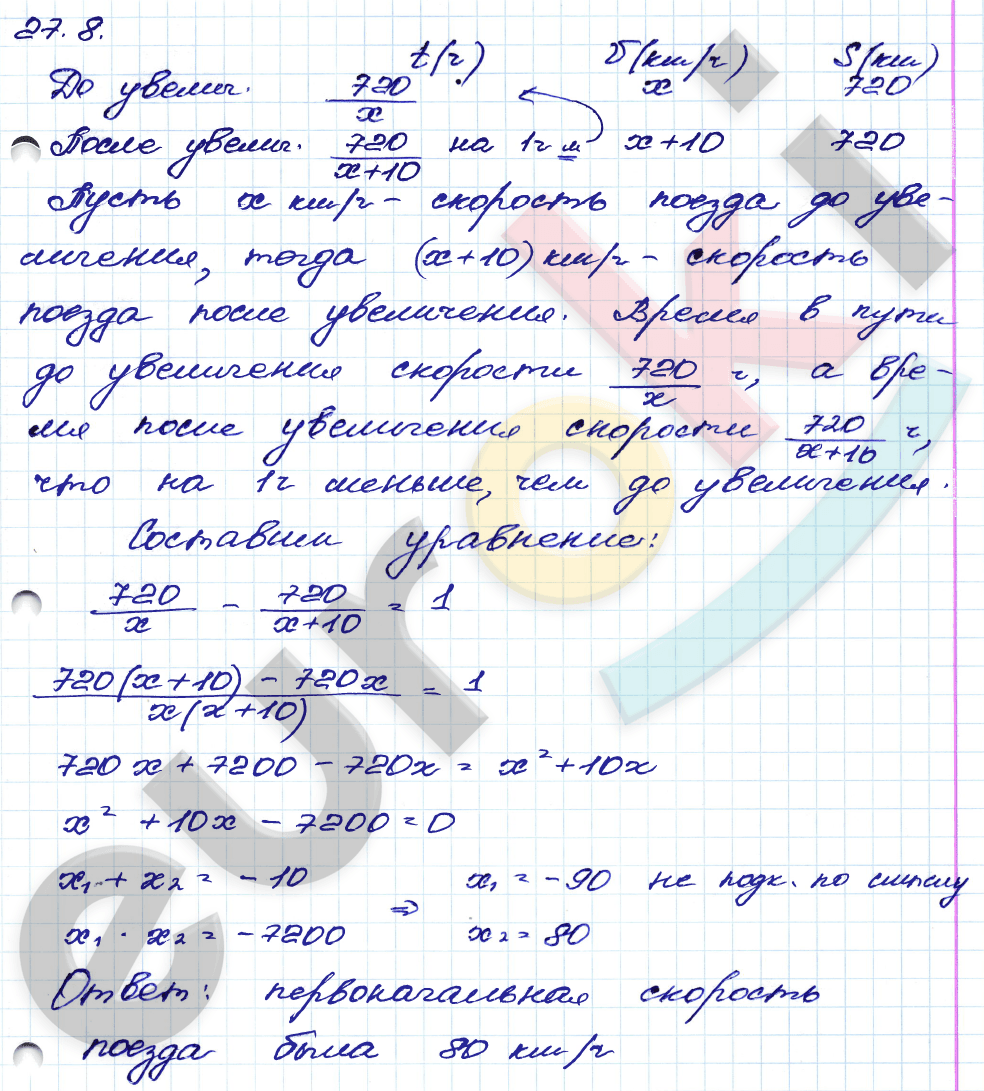 27.8.
t(ч) V(км/ч) S(км)
До увелич. 720/x x 720
После увелич. 720/(x+10) на 1ч м x+10 720
Пусть x км/ч - скорость поезда до уве-
личения, тогда (x+10) км/ч - скорость
поезда после увеличения. Время в пути
до увеличения скорости 720/x ч, а вре-
мя после увеличения скорости 720/(x+10) ч,
что на 1ч меньше, чем до увеличения.
Составим уравнение:
720/x - 720/(x+10) = 1
(720(x+10) - 720x)/(x(x+10)) = 1
720x + 7200 - 720x = x² + 10x
x² + 10x - 7200 = 0
x₁ + x₂ = -10 x₁ = -90 не подх. по смыслу
⇒
x₁ · x₂ = -7200 x₂ = 80
Ответ: первоначальная скорость
поезда была 80 км/ч
euroki